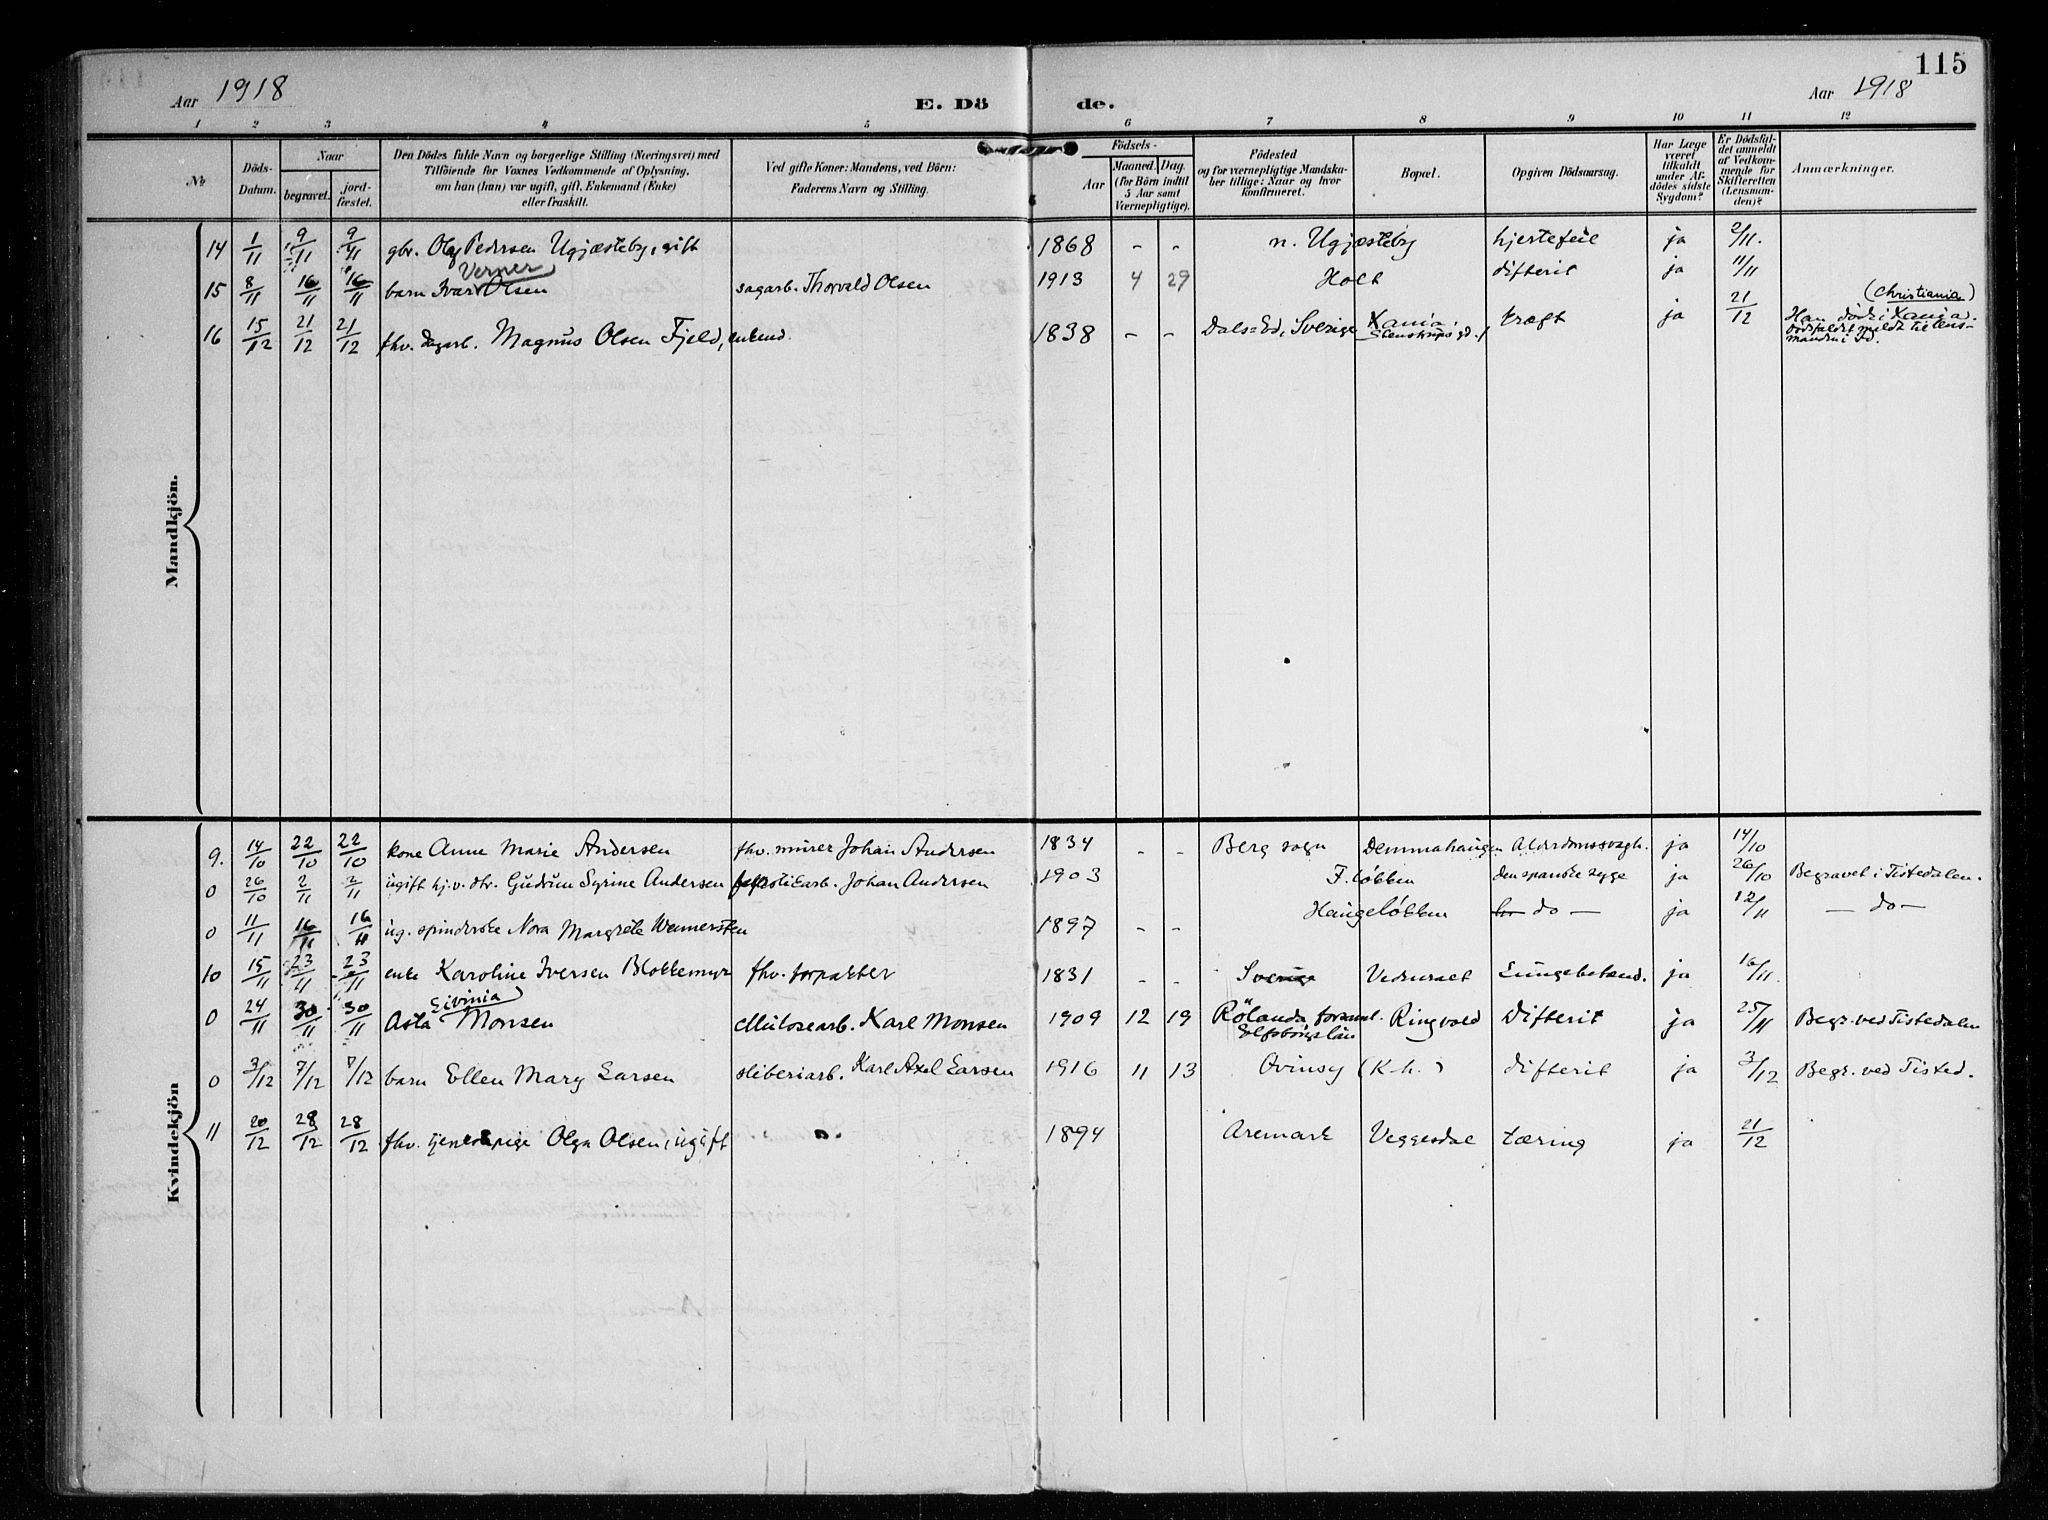 115
Aar 1918 E. Dö de. Aar 1918
1 2 3 4 5 6 7 8 9 10 11 12
No
Döds-Datum.
Naar
begravet.
jord-fæstet.
Den Dödes fulde Navn og borgerlige Stilling (Næringsvei) med
Tilföiende for Voxnes Vedkommende af Oplysning,
om han (hun) var ugift, gift, Enkemand (Enke)
eller fraskilt.
Ved gifte Koner: Mandens, ved Börn:
Faderens Navn og Stilling.
Födsels-
Aar
Maaned. Dag.
(for Börn indtil
5 Aar samt
Værnepligtige).
Födested
og for værnepligtige Mandska-
ber tillige: Naar og hvor
konfirmeret.
Bopæl.
Opgiven Dödsaarsag.
Har Læge
været
tilkaldt
under Af-
dödes sidste
Sygdom?
Er Dödsfal-
det anmeldt
af Vedkom-
mende for
Skifteretten
(Lensman-
den)?
Anmærkninger.
Mandkjön.
14 1/11 9/11 9/11 gbr. Olaf Pedersen Ugjæsteby, gift 1868 - - n. Ugjæsteby hjertefeil ja 2/11.
Verner
15 8/11 16/11 16/11 barn Ivar Olsen sagarb. Thorvald Olsen 1913 4 29 Holt difterit ja 11/11
(Christiania)
16 15/12 21/12 21/12 fhv. dagarb. Magnus Olsen Fjeld, enkend. 1838 - - Dals=Ed, Sverige Kania, kræft ja 21/12 Han döde i Kania.
Stenstrups gd. Dödsfaldet meldt til lens-
manden i Id.
Kvindekjön
9. 14/10 22/10 22/10 kone Anne Marie Andersen fhv. murer Johan Andersen 1834 - - Berg sogn Demmahaugen Alderdomssvagh. ja 14/10
0 26/10 2/11 2/11 ugift hj.v. dtr. Gudrun Syrine Andersen Johan Andersen 1903 F. løkken den spanske syge ja 26/10 Begravet i Tistedalen.
0 11/11 16/11 16/11 ug. spinderske Nora Margrete Wennersten 1897 - - Haugeløkken - do - ja 12/11 - do -
10 15/11 23/11 23/11 enke Karoline Iversen Blokkemyr fhv. forpakter 1831 - - Sverige Vedueset Lungebetænd. ja 16/11.
Livinia
0 24/11 30/11 30/11 Asta Monsen cellulosearb. Karl Monsen 1909 12 19 Rölanda forsaml. Ringvold Difterit ja 25/11 Begr. ved Tistedalen
Elfsborgs län
0 3/12 7/12 7/12 barn Ellen Mary Larsen sliberiarb. Karl Axel Larsen 1916 11 13 Kvinsy (K.h.) difterit ja 3/12 Begr. ved Tisted.
11 20/12 28/12 28/12 fhv. tjenestepige Olga Olsen, ugift 1894 Aremark Veggesdal tæring ja 21/12